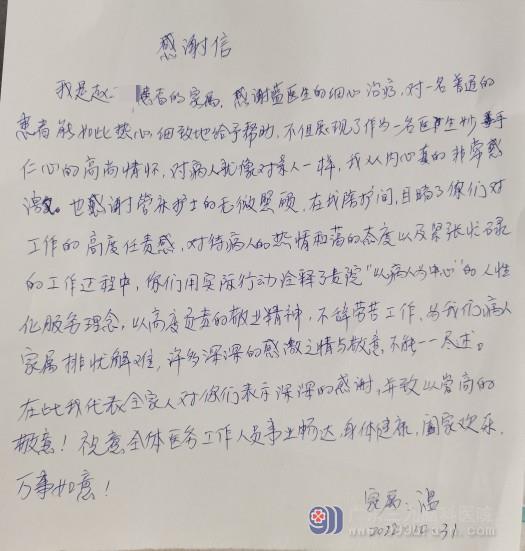 感谢信
我是赵 患者的家属，感谢蓝医生的细心治疗，对一名普通的
患者能如此热心细致地给予帮助，不但展现了作为一名医生妙手
仁心的高尚情怀，对病人就像对亲人一样，我从内心真的非常感
激。也感谢管床护士的无微照顾，在我陪护间，目睹了你们对
工作的高度任责感，对待病人的热情和蔼的态度以及紧张忙碌
的工作过程中，你们用实际行动诠释了贵院“以病人为中心”的人性
化服务理念，以高度负责的敬业精神，不辞劳苦工作，为我们病人
家属排忧解难，许多深深的感激之情与敬意不能一一尽述。
在此我代表全家人对你们表示深深的感谢，并致以崇高的
敬意！祝愿全体医务工作人员事业畅达，身体健康，阖家欢乐，
万事如意！
家属：温
31